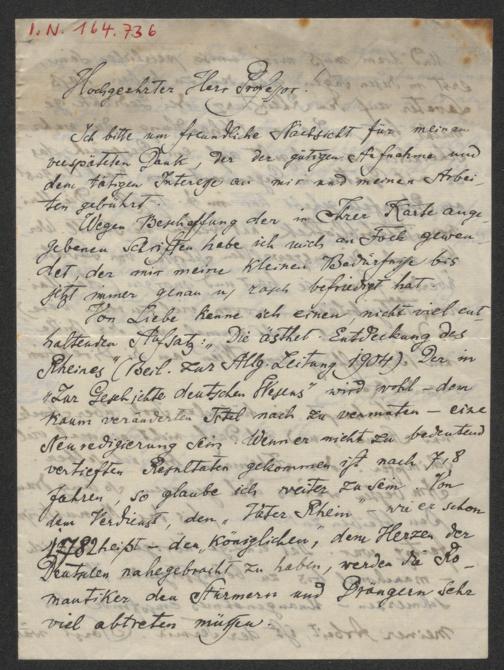 I.N. 164.736
Hochgeehrter Herr Professor!
Ich bitte um freundliche Nachsicht für meinen
verspäteten Dank, der der gütigen Aufnahme und
dem tätigen Interesse an mir und meinen Arbei-
ten gebührt.
Wegen Beschaffung der in Ihrer Karte ange
gebenen Schriften habe ich mich an Fock gewen
det, der mir meine kleinen Bedürfnisse bis
jetzt immer genau u, rasch befriedigt hat.
Von Liebe kenne ich einen nicht viel ent
haltenden Aufsatz: „Die ästhet. Entdeckung des
Rheines" (Beil. zur Allg. Zeitung 1904). Der in
„Zur Geschichte deutschen Wesens" wird wohl – dem
kaum veränderten Titel nach zu vermuten – eine
Neuredigierung sein. Wenn er nicht zu bedeutend
vertieften Resultaten gekommen ist nach 7, 8
Jahren, so glaube ich weiter zu sein. Von
dem Verdienst, den „Vater Rhein" – wie er schon
1782 heißt – den „königlichen, dem Herzen der
Deutschen nahegebracht zu haben, werden die Ro-
mantiker den Stürmern und Drängern sehr
viel abtreten müssen.